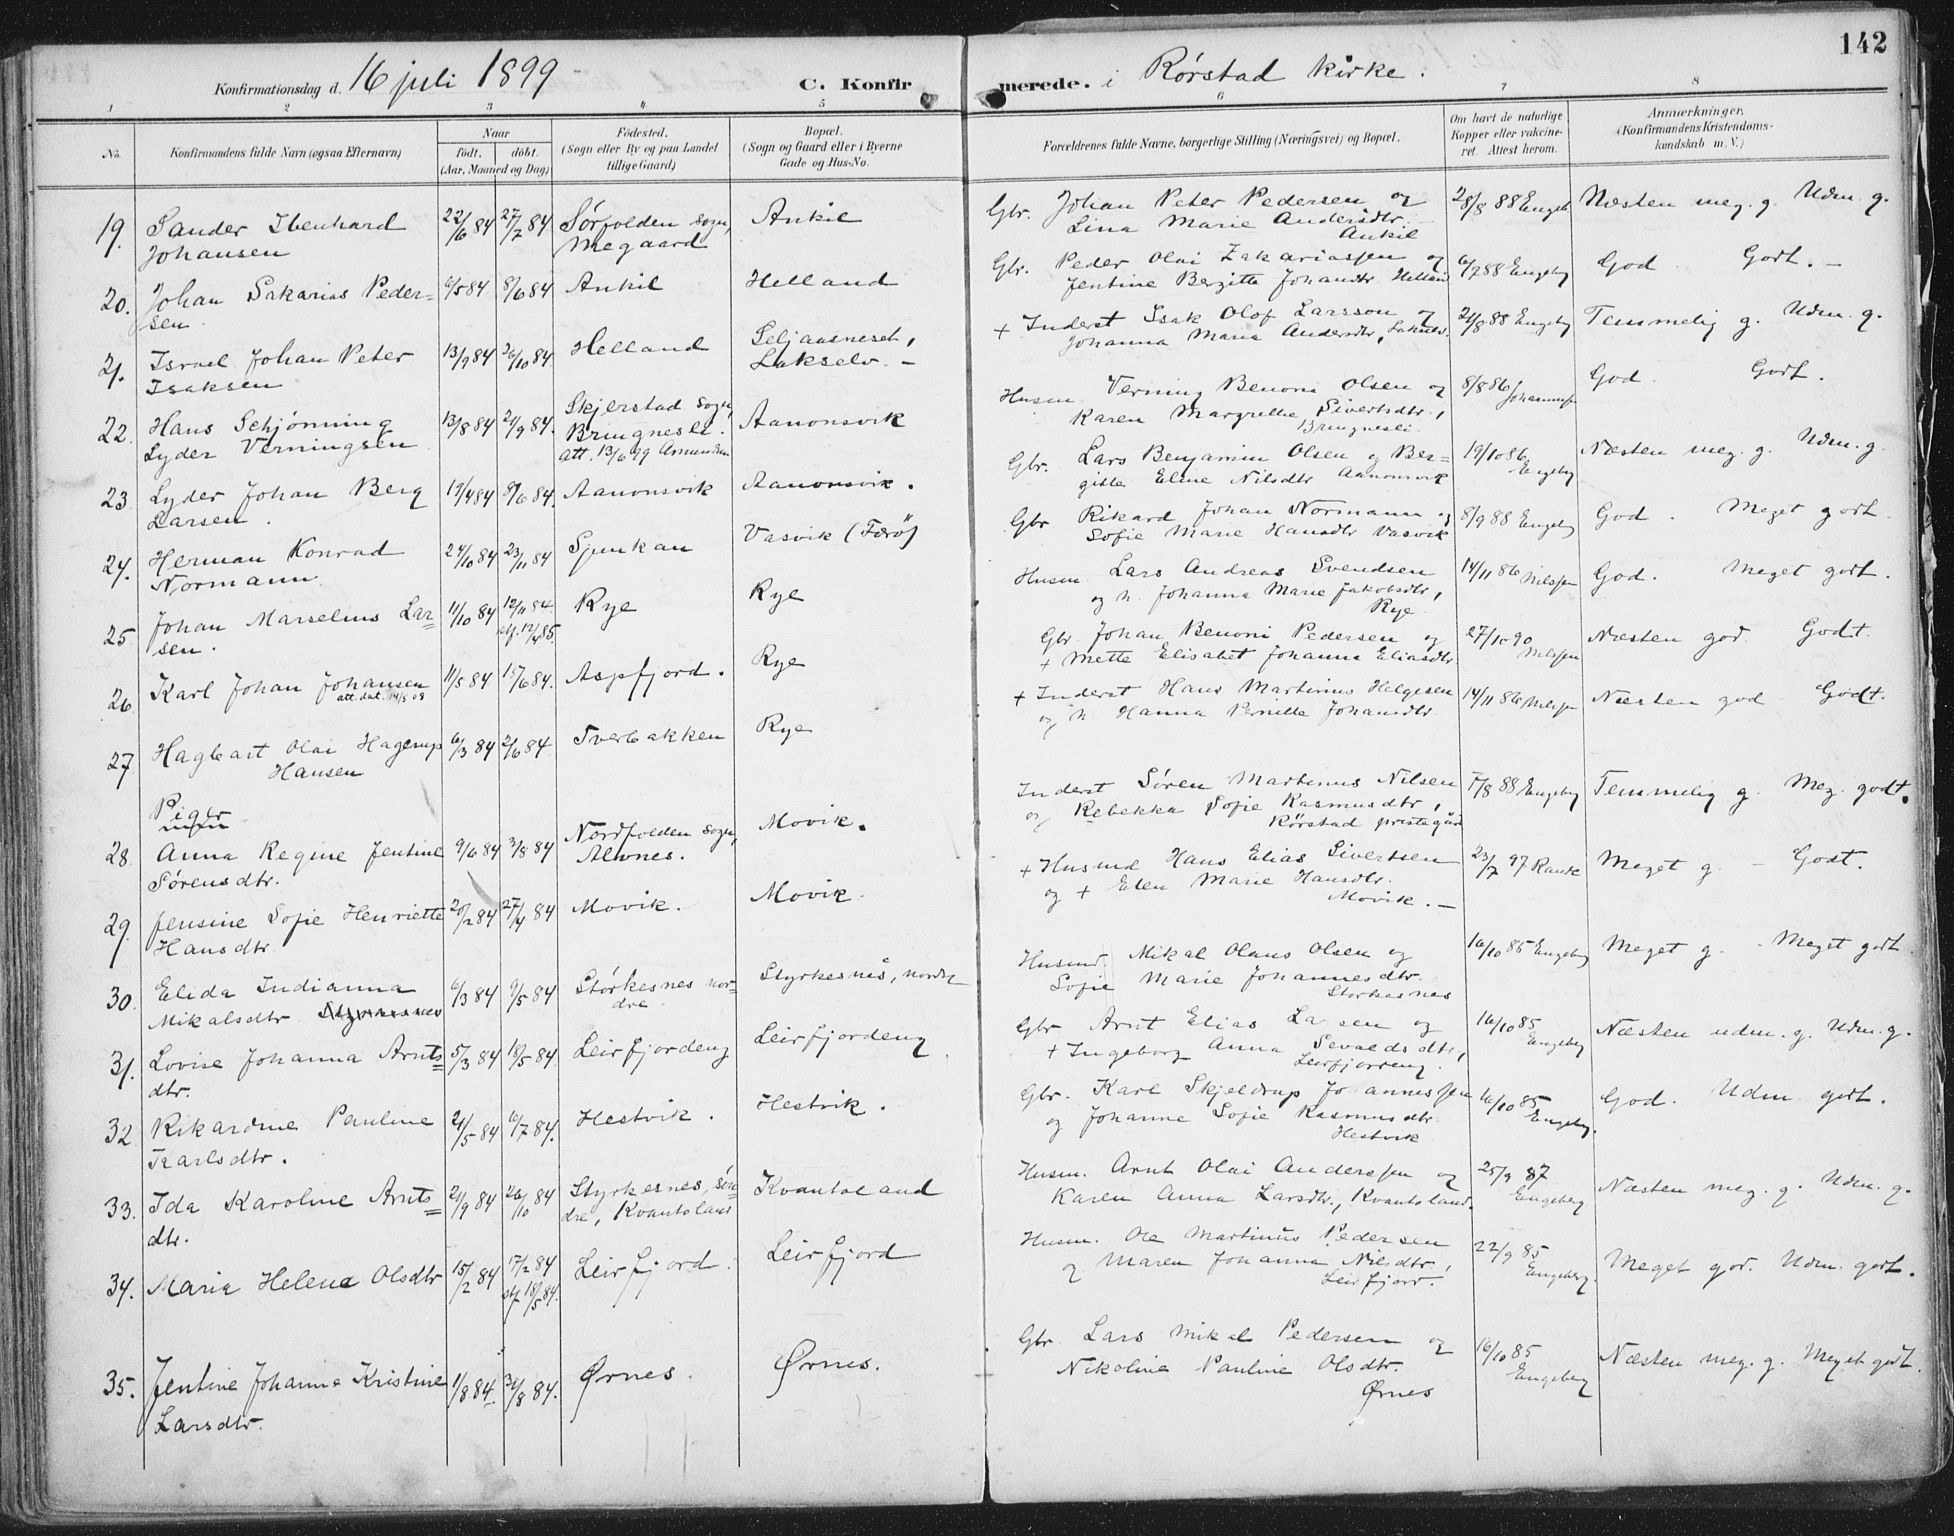 142
Konfirmationsdag d. 16 juli 1899 C. Konfirmerede. i Rørstad kirke.
1 2 3 4 5 6 7 8
No. Konfirmandens fulde Navn (ogsaa Efternavn) Naar født. døbt. (Aar, Maaned og Dag) Fødested. (Sogn eller By og paa Landet tillige Gaard) Bopæl. (Sogn og Gaard eller i Byerne Gade og Hus-No. Forældrenes fulde Navne, borgerlige Stilling (Næringsvei) og Bopæl. Om havt de naturlige Kopper eller vakcineret. Attest herom. Anmærkninger, (Konfirmandens Kristendomskundskab m. V.)
19. Sander Ibenhard 22/6 84 27/7 84 Sørfolden sogn, Ankil Gbr. Johan Peter Pedersen og 28/8 88 Engeb. Næsten meg. g. Udm. g.
Johansen Megaard Lina Marie Andersdtr. Ankil
20. Johan Sakarias Peder= 6/5 84 8/6 84 Ankil Helland Gbr. Peder Olai Zakariassen og 6/7 88 Engeby God Godt. –
sen. Jentine Bergitte Johansdtr.
21. Israel Johan Peter 13/9 84 26/10 84 Helland Seljaasneset, + Inderst Isak Olof Larsson og 21/8 88 Engeby Temmelig g. Udm. g.
Isaksen Lakselv. – Johanna Maria Andersdtr,
22. Hans Schjønning 13/8 84 21/9 84. Skjerstad sogn, Aanonsvik Husm. Verning Benoni Olsen og 8/8 86 God. Godt.
Lyder Verningsen Bringnesli. Karen Margrethe Sivertsdtr., Bringnesli
att. 13/6 99 Amundsen
23. Lyder Johan Berg 19/4 84 8/6 84. Aanonsvik Aanonsvik. Gbr. Lars Benjamin Olsen og Ber= 19/10 86 Engeby Næsten meg. g. Udm. g.
Larsen. gitte Eline Nilsdtr Aanonsvik
24. Herman Konrad 24/10 84 23/11 84 Sjunkan Vasvik (Færø) Gbr Rikard Johan Normann og 8/9 88 Engeby God. Meget godt.
Normann. Sofie Marie Hansdtr Vasvik
25 Johan Marselius Lar= 11/10 84 12/11 84. Rye Rye Husm. Lars Andreas Svendsen 14/11 86 Nilssen God. Meget godt.
sen. stf. 12/4 85. og h. Johanna Marie Jakobsdtr, Rye
26. Karl Johan Johansen 11/5 84 15/6 84. Aspfjord. Rye Gbr. Johan Benoni Pedersen og 27/10 90 Nilssen Næsten god. Godt.
att. dat. 14/5 09 + Mette Elisabet Johanna Eliasdtr
27 Hagbart Olai Hagerup 6/3 84 2/6 84. Tverbakken Rye + Inderst Hans Martinus Helgesen 14/11 86 Nilssen Næsten god Godt.
Hansen og h. Hanna Pernille Johansdtr.
Piger
28. Anna Regine Jentine 9/6 84 3/8 84 Nordfolden sogn, Movik. Inderst Søren Martinus Nilsen 7/8 88 Engeby Temmelig g. Meg. godt.
Sørensdtr. Alvnes. og Rebekka Sofie Rasmusdtr, Rørstad prestegård
29. Jensine Sofie Henriette 20/2 84 27/4 84 Movik. Movik. + Husmd Hans Elias Sivertsen 23/7 97 Rande Meget g. – Godt.
Hansdtr og + Elen Marie Hansdtr. Movik. –
30. Elida Indianna 6/3 84 9/5 84 Störkesnes nor= Styrkesnes, nordre Husmd. Mikal Olaus Olsen og 16/10 85 Engeby Meget g. – Meget godt.
Mikalsdtr dre. Sofie Marie Johannesdtr. Störkesnes
31. Lovise Johanna Arnts= 5/3 84 18/5 84. Leirfjordeng Leirfjordeng Gbr Arnt Elias Larsen og 16/10 85 Engeby Næsten udm. g. Udm. g.
dtr. + Ingeborg Anna Sevaldsdtr, Leirfjordeng.
32. Rikardine Pauline 21/5 84 6/7 84. Hestvik. Hestvik. Gbr. Karl Skjeldrup Johannessen 16/10 85 Engeby. God. Udm. godt.
Karlsdtr. og Johanne Sofie Rasmusdtr. Hestvik
33. Ida Karoline Arnts= 21/9 84 26/10 84 Styrkesnes, søn= Kvantoland Husm. Arnt Olai Anderssen og 25/9 87 Engeberg Næsten meg. g. Udm. g.
dtr. dre, Kvantoland Karen Anna Larsdtr., Kvantoland.
34. Maria Helene Olsdtr 15/2 84 17/2 84 Leirfjord. Leirfjord Husm. Ole Martinus Pedersen 22/9 85 Engeberg. Meget god. Udm. godt.
stf. 18/5 84. og Maren Johanna Nilsdtr, Leirfjord.
35. Jentine Johanna Kristine 1/8 84. 31/8 84. Ørnes. Ørnes. Gbr. Lars Mikal Pedersen og 16/10 85 Engeberg Næsten meg. g. Meget godt.
Larsdtr. Nikoline Pauline Olsdtr. Ørnes